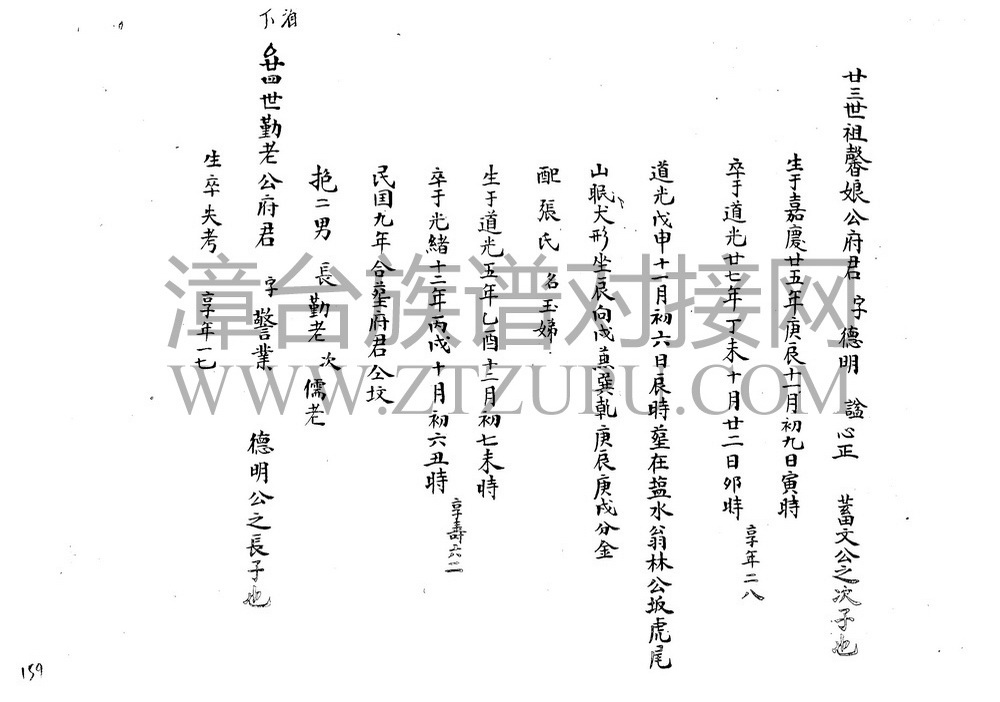 廿三世祖馨娘公府君 字德明 諡心正 蓄文公之次子也
生于嘉慶廿五年庚辰十一月初九日寅時
卒于道光廿七年丁未十月廿二日卯時 享年二八
道光戊申十一月初六日辰時塟在塩水翁林公坂虎尾
山眠犬形坐辰向戍兼巽乾庚辰庚戍分金
配張氏 名玉娣
生于道光五年乙酉十二月初七未時
卒于光緒十二年丙戍十月初六丑時 享壽六二
民国九年合塟府君仝坟
抱二男 長勤老 次儒老
廿四世勤老公府君 字警業 德明公之長子也
生卒失考 享年一七
漳台族谱对接网
WWW.ZTZUPU.COM
159